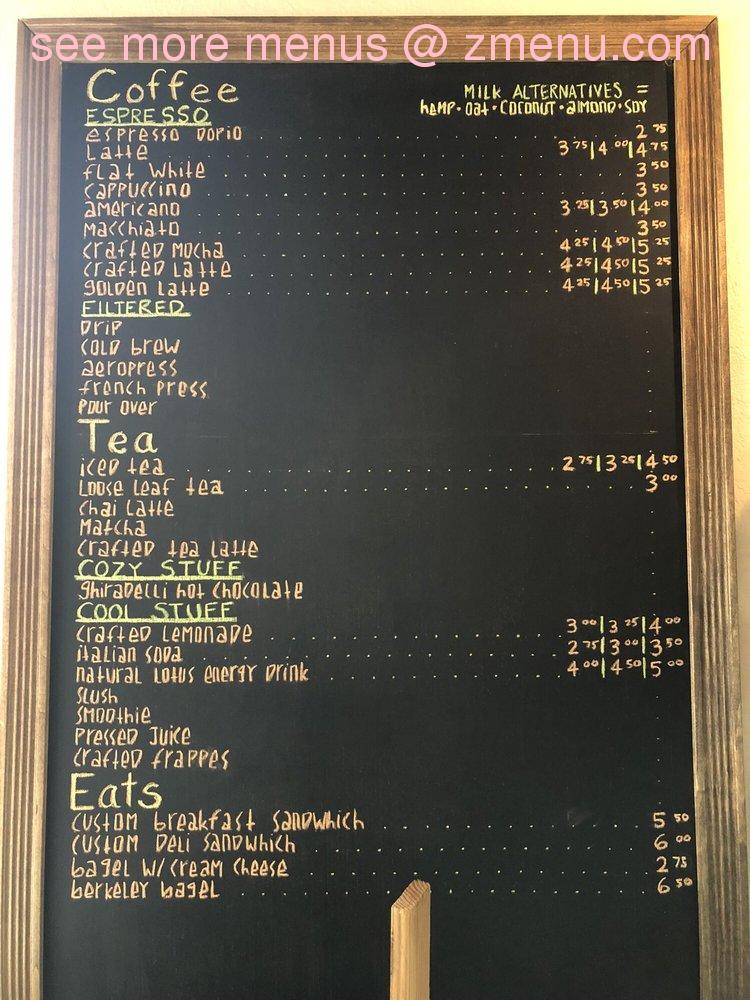 see more menus @ zmenu.com
Coffee
MILK ALTERNATIVES =
hemp • oat • coconut • almond • soy
ESPRESSO
espresso dopio 2 75
Latte 3 75|4 00|4 75
flat white 3 50
cappuccino 3 50
americano 3 25|3 50|4 00
macchiato 3 50
crafted mocha 4 25|4 50|5 25
crafted latte 4 25|4 50|5 25
golden latte 4 25|4 50|5 25
FILTERED
Drip
cold brew
aeropress
french press
pour over
Tea
iced tea 2 75|3 25|4 50
Loose leaf tea 3 00
chai latte
Matcha
crafted tea latte
COZY STUFF
ghiradelli hot chocolate
COOL STUFF
crafted lemonade 3 00|3 25|4 00
italian soda 2 75|3 00|3 50
natural lotus energy drink 4 00|4 50|5 00
slush
smoothie
pressed juice
crafted frappes
Eats
custom breakfast sandwhich 5 50
custom deli sandwhich 6 00
bagel w/ cream cheese 2 75
berkeley bagel 6 50